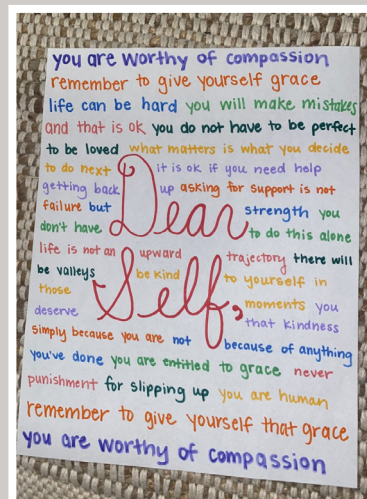 you are worthy of compassion
remember to give yourself grace
life can be hard you will make mistakes
and that is ok you do not have to be perfect
to be loved what matters is what you decide
to do next it is ok if you need help
getting back up asking for support is not
failure but strength you
Dear
don't have to do this alone
life is not an upward trajectory there will
be valleys be kind to yourself in
Self,
those moments you
deserve that kindness
simply because you are not because of anything
you've done you are entitled to grace never
punishment for slipping up you are human
remember to give yourself that grace
you are worthy of compassion